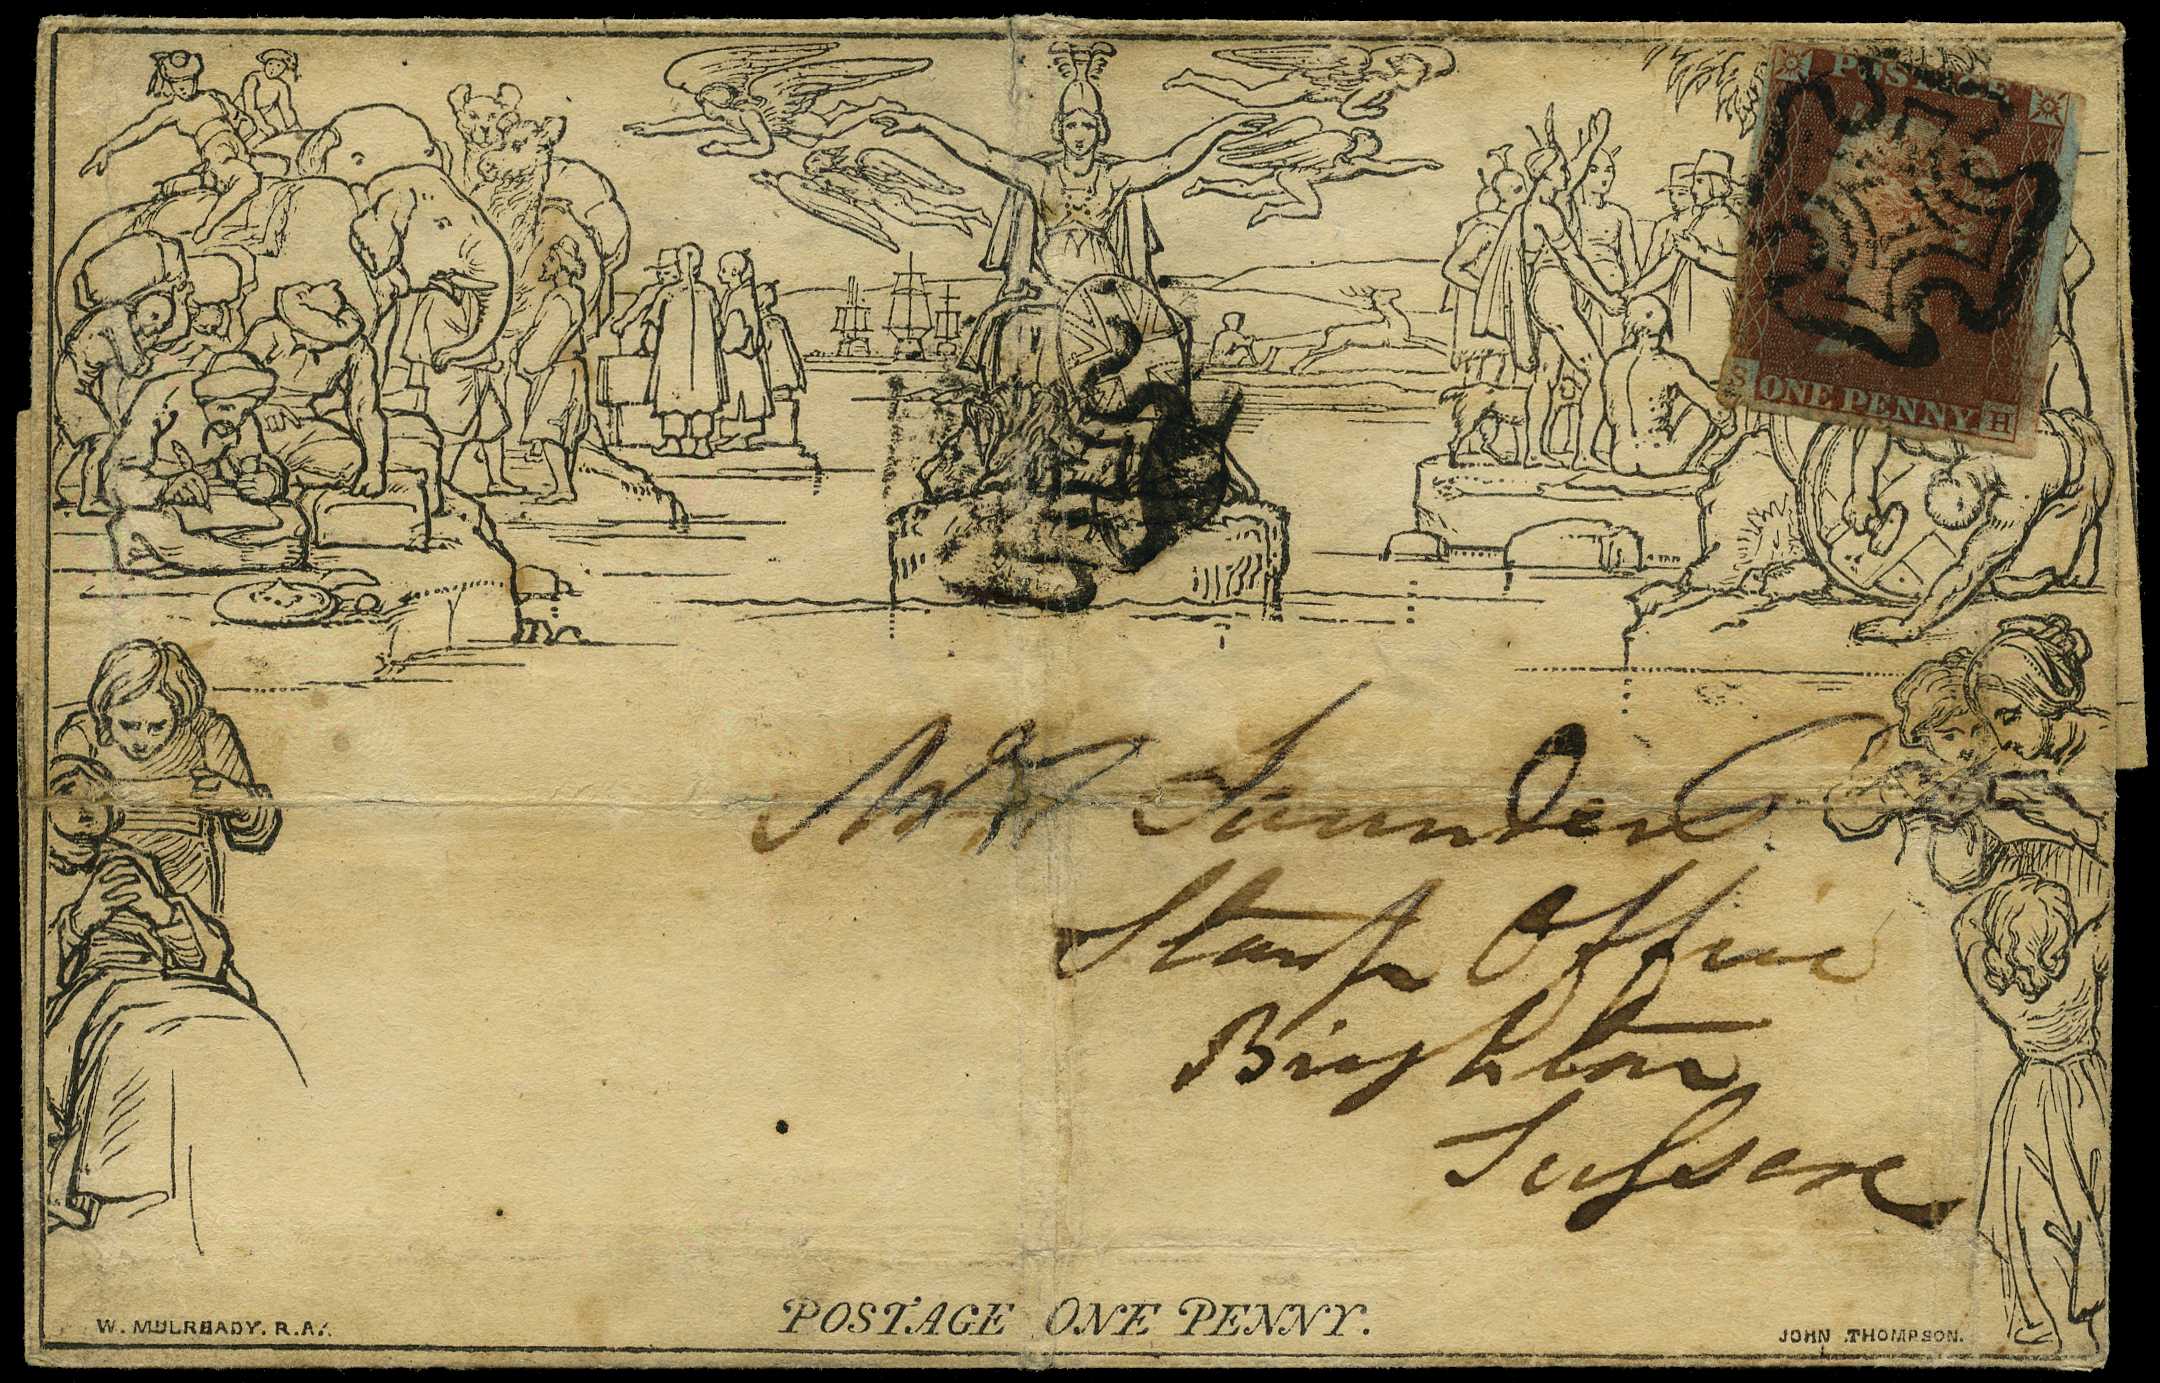 POSTAGE
S ONE PENNY H
Mr Saunders
Stamp Office
Brighton
Sussex
POSTAGE ONE PENNY.
W. MULREADY. R.A.
JOHN THOMPSON.